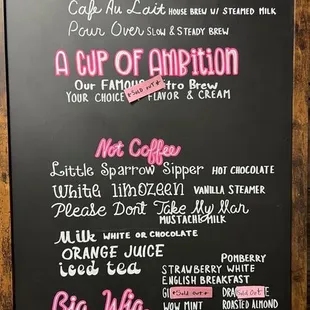 Cafe Au Lait HOUSE BREW W/ STEAMED MILK
Pour Over SLOW & STEADY BREW
A CUP OF AMBITION
Our FAMOUS Nitro Brew
YOUR CHOICE OF FLAVOR & CREAM
*SOLD OUT*
Not Coffee
Little Sparrow Sipper HOT CHOCOLATE
White limozeen VANILLA STEAMER
Please Dont Take My Man
MUSTACHE MILK
Milk WHITE OR CHOCOLATE
ORANGE JUICE
iced tea
POMBERRY
STRAWBERRY WHITE
ENGLISH BREAKFAST
*Sold out*
Sold Out
WOW MINT
ROASTED ALMOND
Big Wig